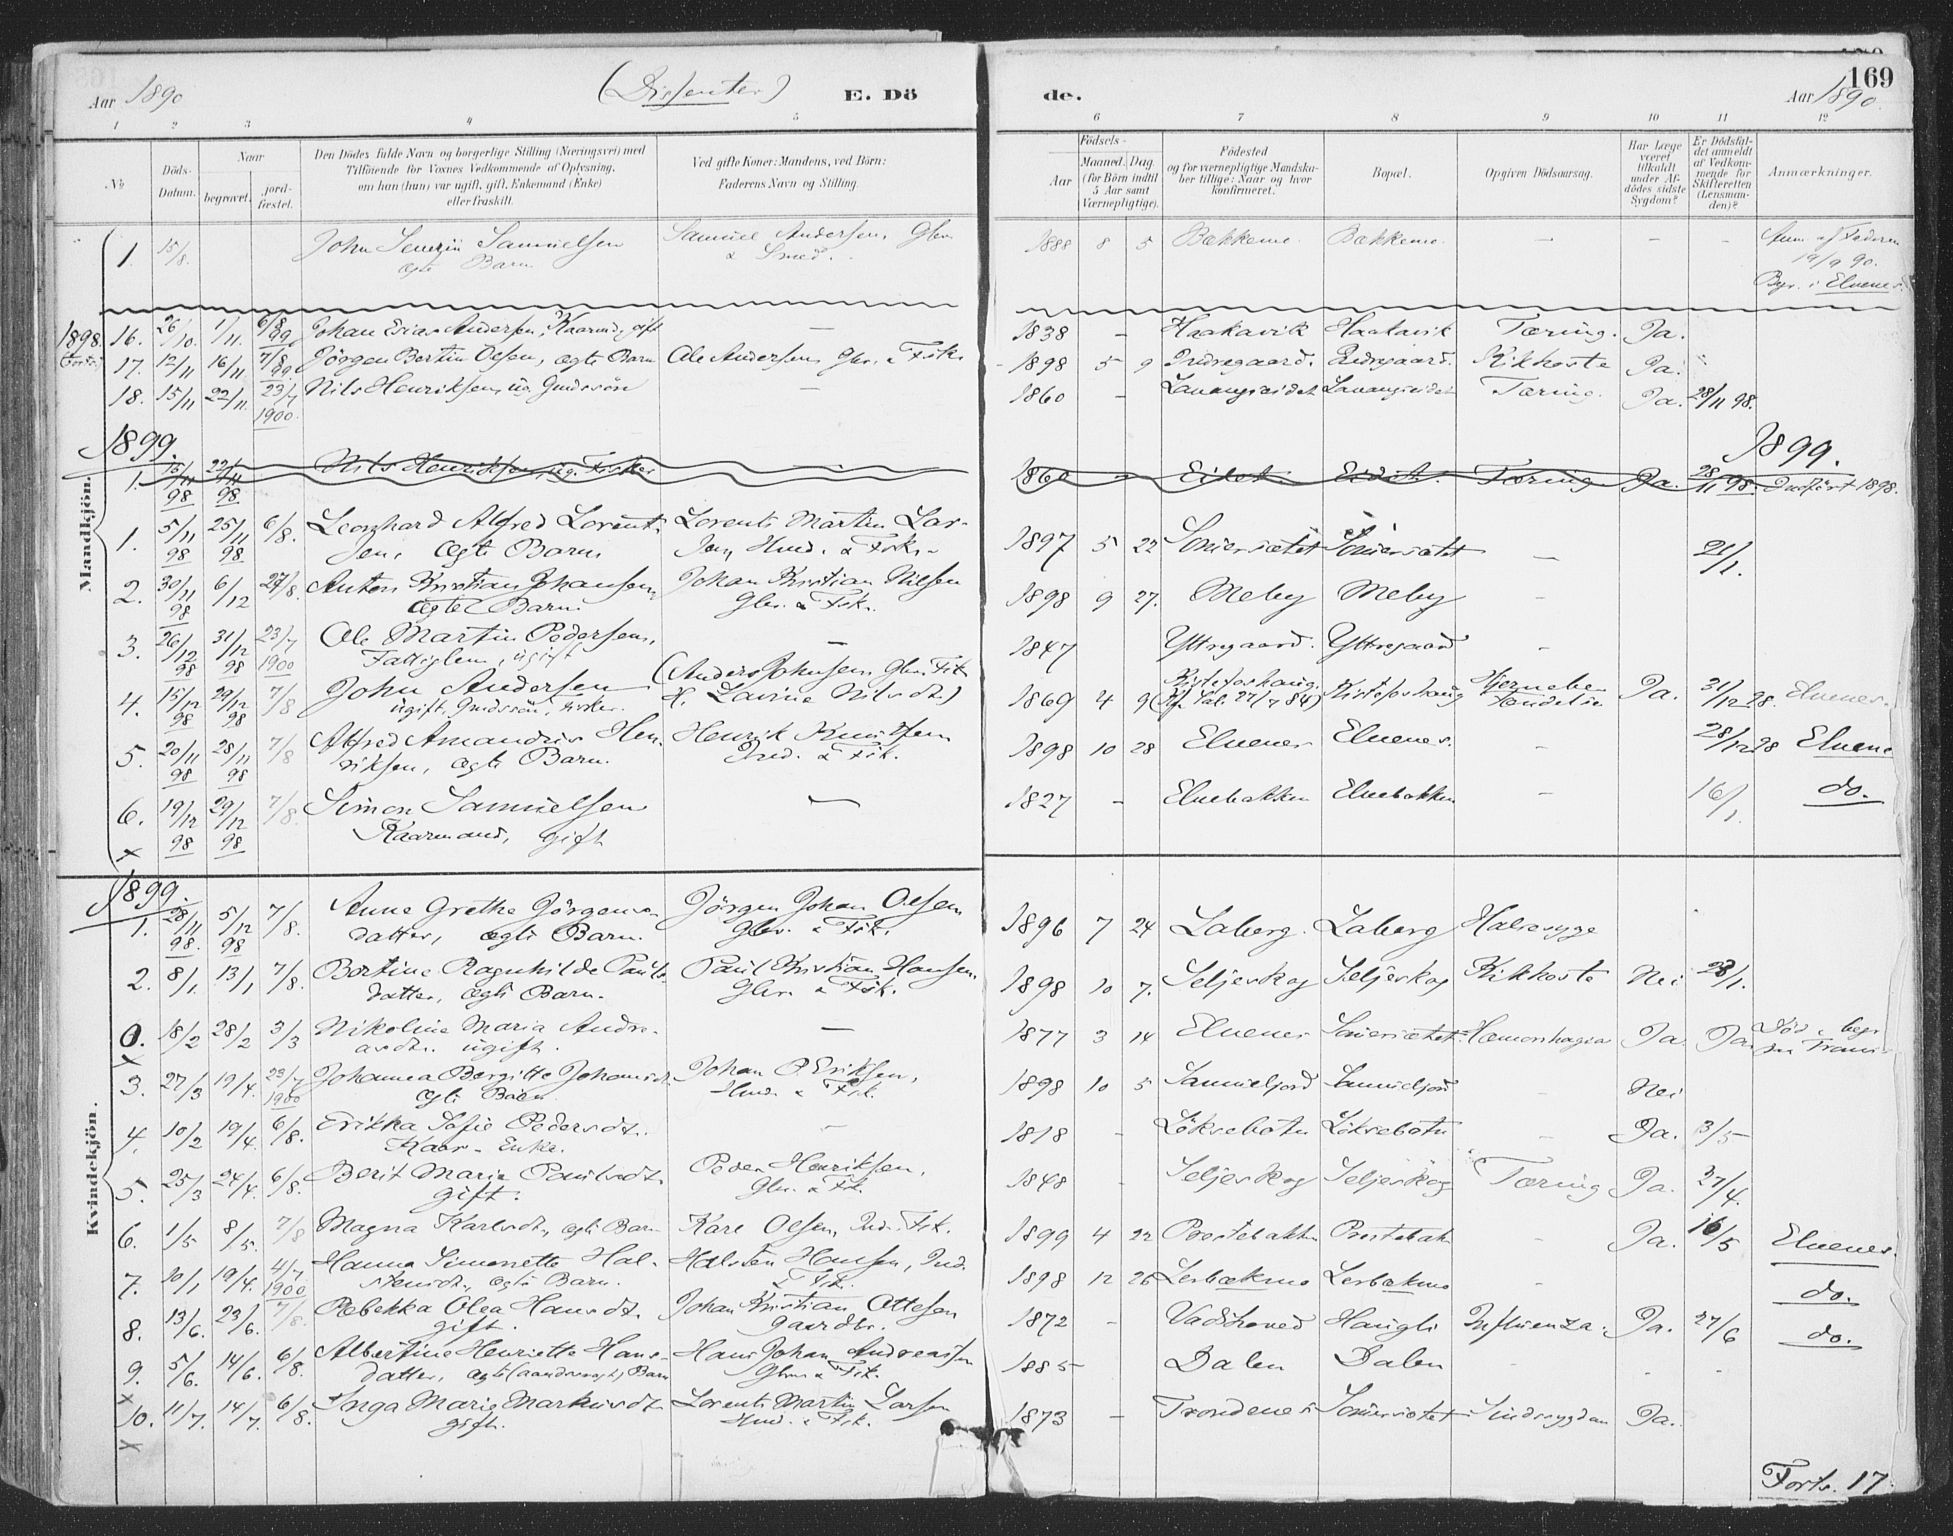 169
Aar 1890 (Dissenter) E. Dö de. Aar 1890.
1 2 3 4 5 6 7 8 9 10 11 12
No
Döds-Datum.
Naar
begravet.
jordfæstet.
Den Dödes fulde Navn og borgerlige Stilling (Næringsvei) med
Tilföiende for Voxnes Vedkommende af Oplysning,
om han (hun) var ugift, gift, Enkemand (Enke)
eller fraskilt.
Ved gifte Koner: Mandens, ved Börn:
Faderens Navn og Stilling.
Födsels-
Aar
Maaned. Dag.
(for Börn indtil
5 Aar samt
Værnepligtige).
Födested
og for værnepligtige Mandskaber tillige: Naar og hvor
konfirmeret.
Bopæl.
Opgiven Dödsaarsag.
Har Læge
været
tilkaldt
under Afdödes sidste
Sygdom?
Er Dödsfaldet anmeldt
af Vedkommende for
Skifteretten
(Lensmanden)?
Anmærkninger.
Mandkjön.
1. 15/8. John Severin Samuelsen Samuel Andersen, Gbr. 1888 8 5 Bækkemo. Bækkemo. — — — Anm. af Faderen
ægte Barn & Smed. 19/9 90.
Bgr. i Elvenes.
1898.
16. 26/10. 1/11. 6/8 99 Johan Andersen, Kaarmd, gift — 1838 — Haakavik Haakavik Tæring. Ja.
17. 12/11 16/11 7/8 99. Jörgen Bertin Olsen, ægte Barn Ole Andersen, Gbr. & Fisk. 1898 5 9 Indregaard. Indregaard. Kikhoste Ja.
18. 15/11 22/11. 23/7 1900. Nils Henriksen, ug. Gaardssön — 1860 — Lavangseidet Lavangseidet Tæring. Ja. 28/11 98.
1899. 1899.
1. 15/11 98 22/11 98. Nils Henriksen, ug. Fisker — 1860 — Eidet Eidet. Tæring Ja. 28/11 98. Indfört 1898.
1. 5/11 98 25/11 98 6/8. Leonhard Alfred Lorent- Lorents Martin Lar- 1897 5 22 Sommersætet Sommersætet — 21/1.
sen, ægte Barn sen, Hmd. & Fisk.
2. 30/11 98 6/12 27/8. Anton Kristian Johansen, Johan Kristian Nilsen 1898 9 27. Meby Meby -
ægte Barn. Gbr. & Fsk.
3. 26/12 98 31/12 98 23/7 1900 Ole Martin Pedersen, — 1847 Yttregaard. Yttregaard -
Fattiglem, ugift
4. 15/12 98 29/12 98 7/8 John Andersen (Anders Johnsen, Gbr. Fsk 1869 4 9 Hjernebe- Ja. 31/12 98. Elvenes.
ugift, Gaardssön, Fisker. H. Lavine Nilsdt.) tændelse
5. 20/11 98 28/11 98 7/8 Alfred Amandus Hen- Henrik Knudsen 1898 10 28 Elvenes Elvenes. - 28/12 98 Elvene
riksen, ægte Barn. Ind. & Fsk.
6. 19/12 98 29/12 98 7/8. Simon Samuelsen — 1827 — Elvebakken Elvebakken - 16/1. do.
Kaarmand, gift
Kvindekjön.
1899.
1. 28/11 98. 5/12 98 7/8. Anne Grethe Jörgens- Jörgen Johan Olsen, 1896 7 24 Laberg. Laberg Halssyge
datter, ægte Barn. Gbr. & Fsk.
2. 8/1 13/1 7/8. Bertine Ragnhilde Pauls- Paul Kristian Hansen, 1898 10 7. Seljeskog Seljeskog Kikhoste Nei 28/1.
datter, ægte Barn. Gbr. & Fsk.
0. 18/2 28/2 3/3 Nikoline Maria Andre- — 1877 3 14 Elvenes Sommersætet Hæmorrhagia Ja. Ja. Död & begr.
asdtr. ugift.
3. 27/3 19/4. 23/7 1900 Johanna Bergitte Johansdt. Johan P Eriksen, 1898 10 5 Sammelfjord Sammelfjord - Nei
ægte Barn Hmd. & Fsk.
4. 10/2 19/4. 6/8. Erikka Sofie Pedersdt. - 1818 - Löksebotn Löksebotn - Ja. 3/5
Kaar- Enke.
5. 25/3 24/4. 6/8. Berit Marie Paulsdt. Peder Henriksen, 1848 - Seljeskog Seljeskog Tæring Ja. 27/4.
gift. Gbr. & Fsk.
6. 1/5 8/5. 7/8 Magna Karlsdt, ægte Barn Karl Olsen, Ind. Fsk. 1899 4 22 Prestebakk Prestebak - Ja. 16/5 Elvenes.
7. 10/1 19/4. 4/7 1900 Hanna Simonette Hal- Halsten Hansen, Ind. 1898 12 26 Lerbækmo Lerbækmo - do.
stensdt, ægte Barn. & Fsk.
8. 13/6. 23/6. 7/8. Rebekka Olea Hansdt. Johan Kristian Ottesen 1872 - Haugli Influenza. Ja. 27/6 do.
gift. Gaardbr.
9. 5/6. 14/6. 6/8. Albertine Henriette Hans- Hans Johan Andreassen 1885 Dalen Dalen - - -
datter, ægte (aandssvagt) Barn Gbr. & Fsk.
10. 11/7. 14/7. 6/8. Inga Marie Markusdt. Lorents Martin Larsen 1873 - Trondenes Sommersætet Sindssygdom Ja.
gift. Hmd. & Fsk.
Forts. 17